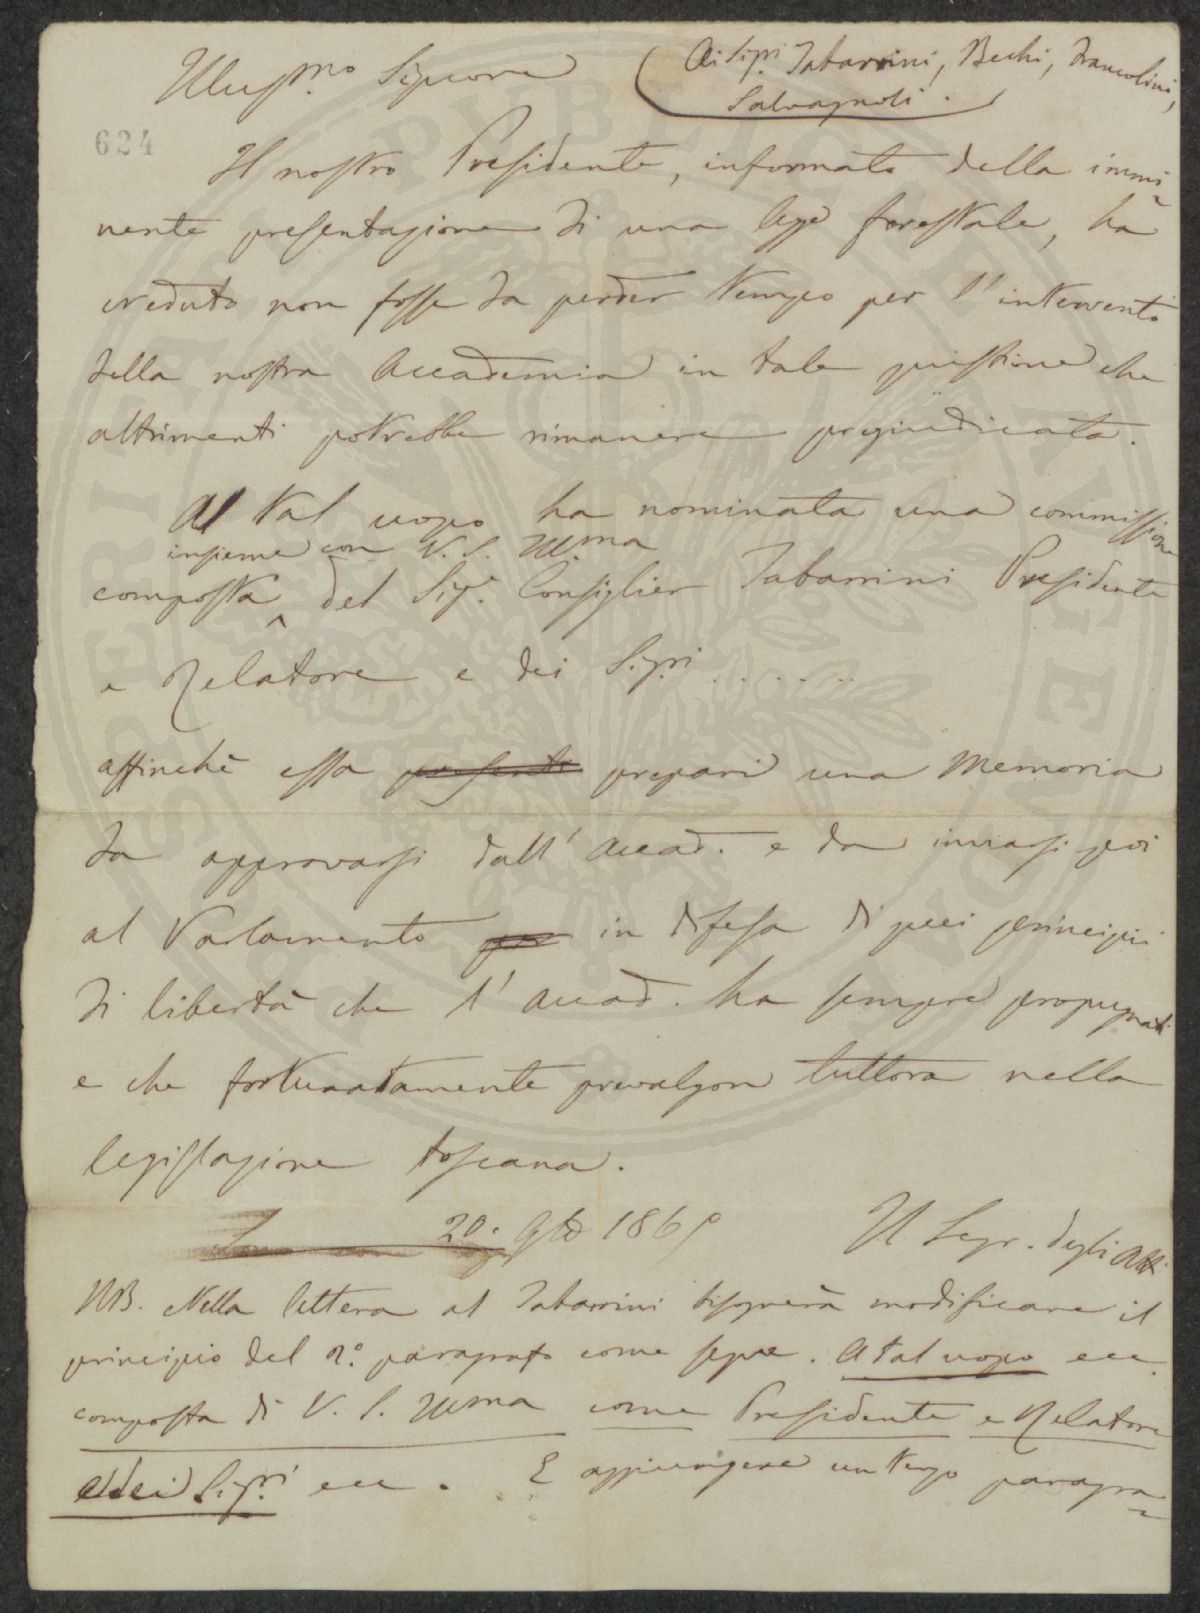 Illustmo Signore
(Ai Sigri Tabarrini, Bechi, Francolini,
Salvagnoli.
624
Il nostro Presidente, informato della immi-
nente presentazione di una legge forestale, ha
creduto non fosse da perder tempo per l'intervento
della nostra Accademia in tale quistione che
altrimenti potrebbe rimanere pregiudicata.
A tal uopo ha nominata una commissione
insieme con V. S. Illma
composta del Sigr Consiglier Tabarrini Presidente
e Relatore e dei Sigri . . . . . .
affinchè essa presenti prepari una Memoria
da approvarsi dall'Accad. e da inviarsi poi
al Parlamento per in difesa di quei principii
di libertà che l'Accad. ha sempre propugnati
e che fortunatamente prevalgon tuttora nella
legislazione toscana.
20. 9b 1869 Il Segr. degli Atti
NB. Nella lettera al Tabarrini bisognerà modificare il
principio del 2.o paragrafo come segue. A tal uopo ecc
composta di V. S. Illma come Presidente e Relatore
e dei Sigri ecc. E aggiungere un terzo paragra-